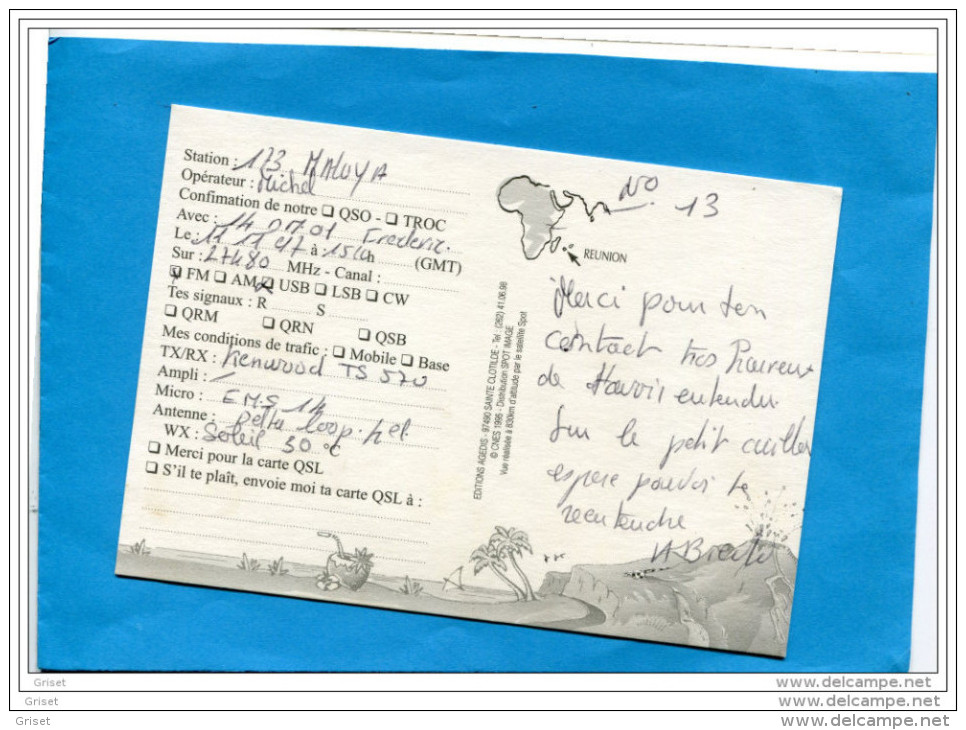 Station : 173 MALOYA
Opérateur : Michel
Confimation de notre ❑ QSO - ❑ TROC
Avec : 14 Frederic.
Le : 11 11 97 à h (GMT)
Sur : 27480 MHz - Canal :
❑ FM ❑ AM ❑ USB ❑ LSB ❑ CW
Tes signaux : R S
❑ QRM ❑ QRN ❑ QSB
Mes conditions de trafic : ❑ Mobile ❑ Base
TX/RX : Kenwood TS 570
Ampli :
Micro : EMS 14
Antenne : Delta loop. hel.
WX : Soleil 30 °C
❑ Merci pour la carte QSL
❑ S'il te plaît, envoie moi ta carte QSL à :
EDITIONS AGEDIS - 97490 SAINTE CLOTILDE - Tel : (262) 41.06.98
© CNES 1995 - Distribution SPOT IMAGE
Vue réalisée à 830km d'altitude par le satellite Spot
REUNION
No 13
Merci pour ton
contact très
de entendu
Sur le petit
espere pouvoir te
reentendre
Griset www.delcampe.net
Griset www.delcampe.net
Griset www.delcampe.net